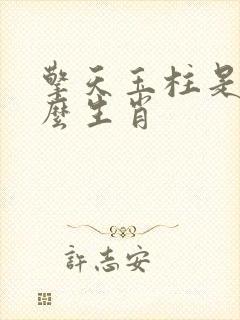 擎天玉柱是
麼生肖
許志安